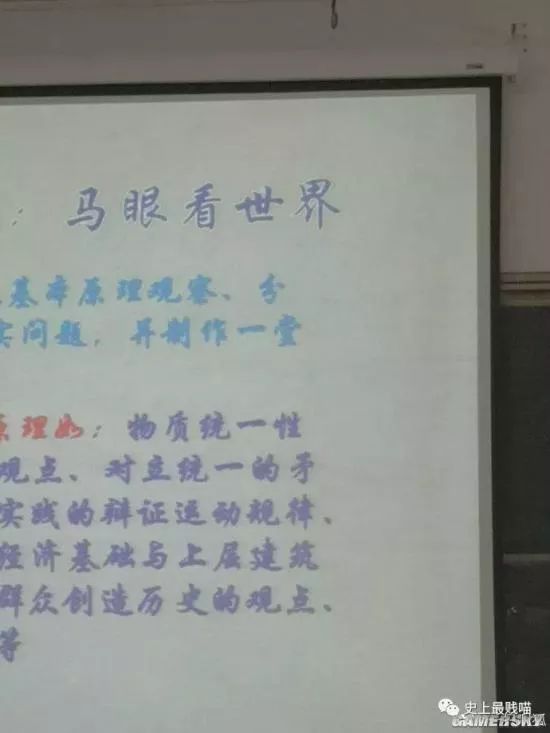 ：马眼看世界
基本原理观察、分
实问题，并制作一堂
原理如：物质统一性
观点、对立统一的矛
实践的辩证运动规律、
经济基础与上层建筑
群众创造历史的观点、
等
史上最贱喵
GAMERSKY